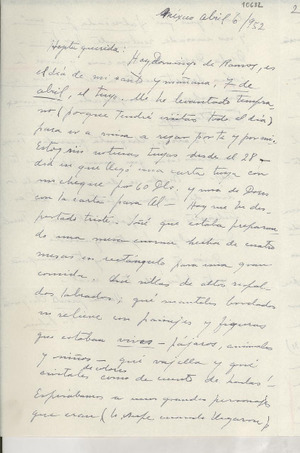 10682
2
Mexico Abril 6/952
Hepta querida: Hoy Domingo de Ramos, es
el día de mi santo y mañana, 7 de
abril, el tuyo. Me he levantado tempra-
no (porque tendré visitas todo el día)
para ir a misa a rogar por ti y por mi.
Estoy sin noticias tuyas desde el 28 -
día en que llegó una carta tuya con
un cheque por 60 Dls. y una de Doris
con la carta para Al - Hoy me he des-
pertado triste. Soñé que estaba preparan
do una mesa enorme hecha de cuatro
mesas en rectángulo para una gran
comida. Qué sillas de altos respal
dos labrados; qué manteles bordados
en relieve con paisajes y figuras
que estaban vivas - pájaros, animales
y niños - qué vajilla y qué
cristales de colores como de cuento de hadas!
Esperábamos a unos grandes personajes
que eran (lo supe cuando llegaron)